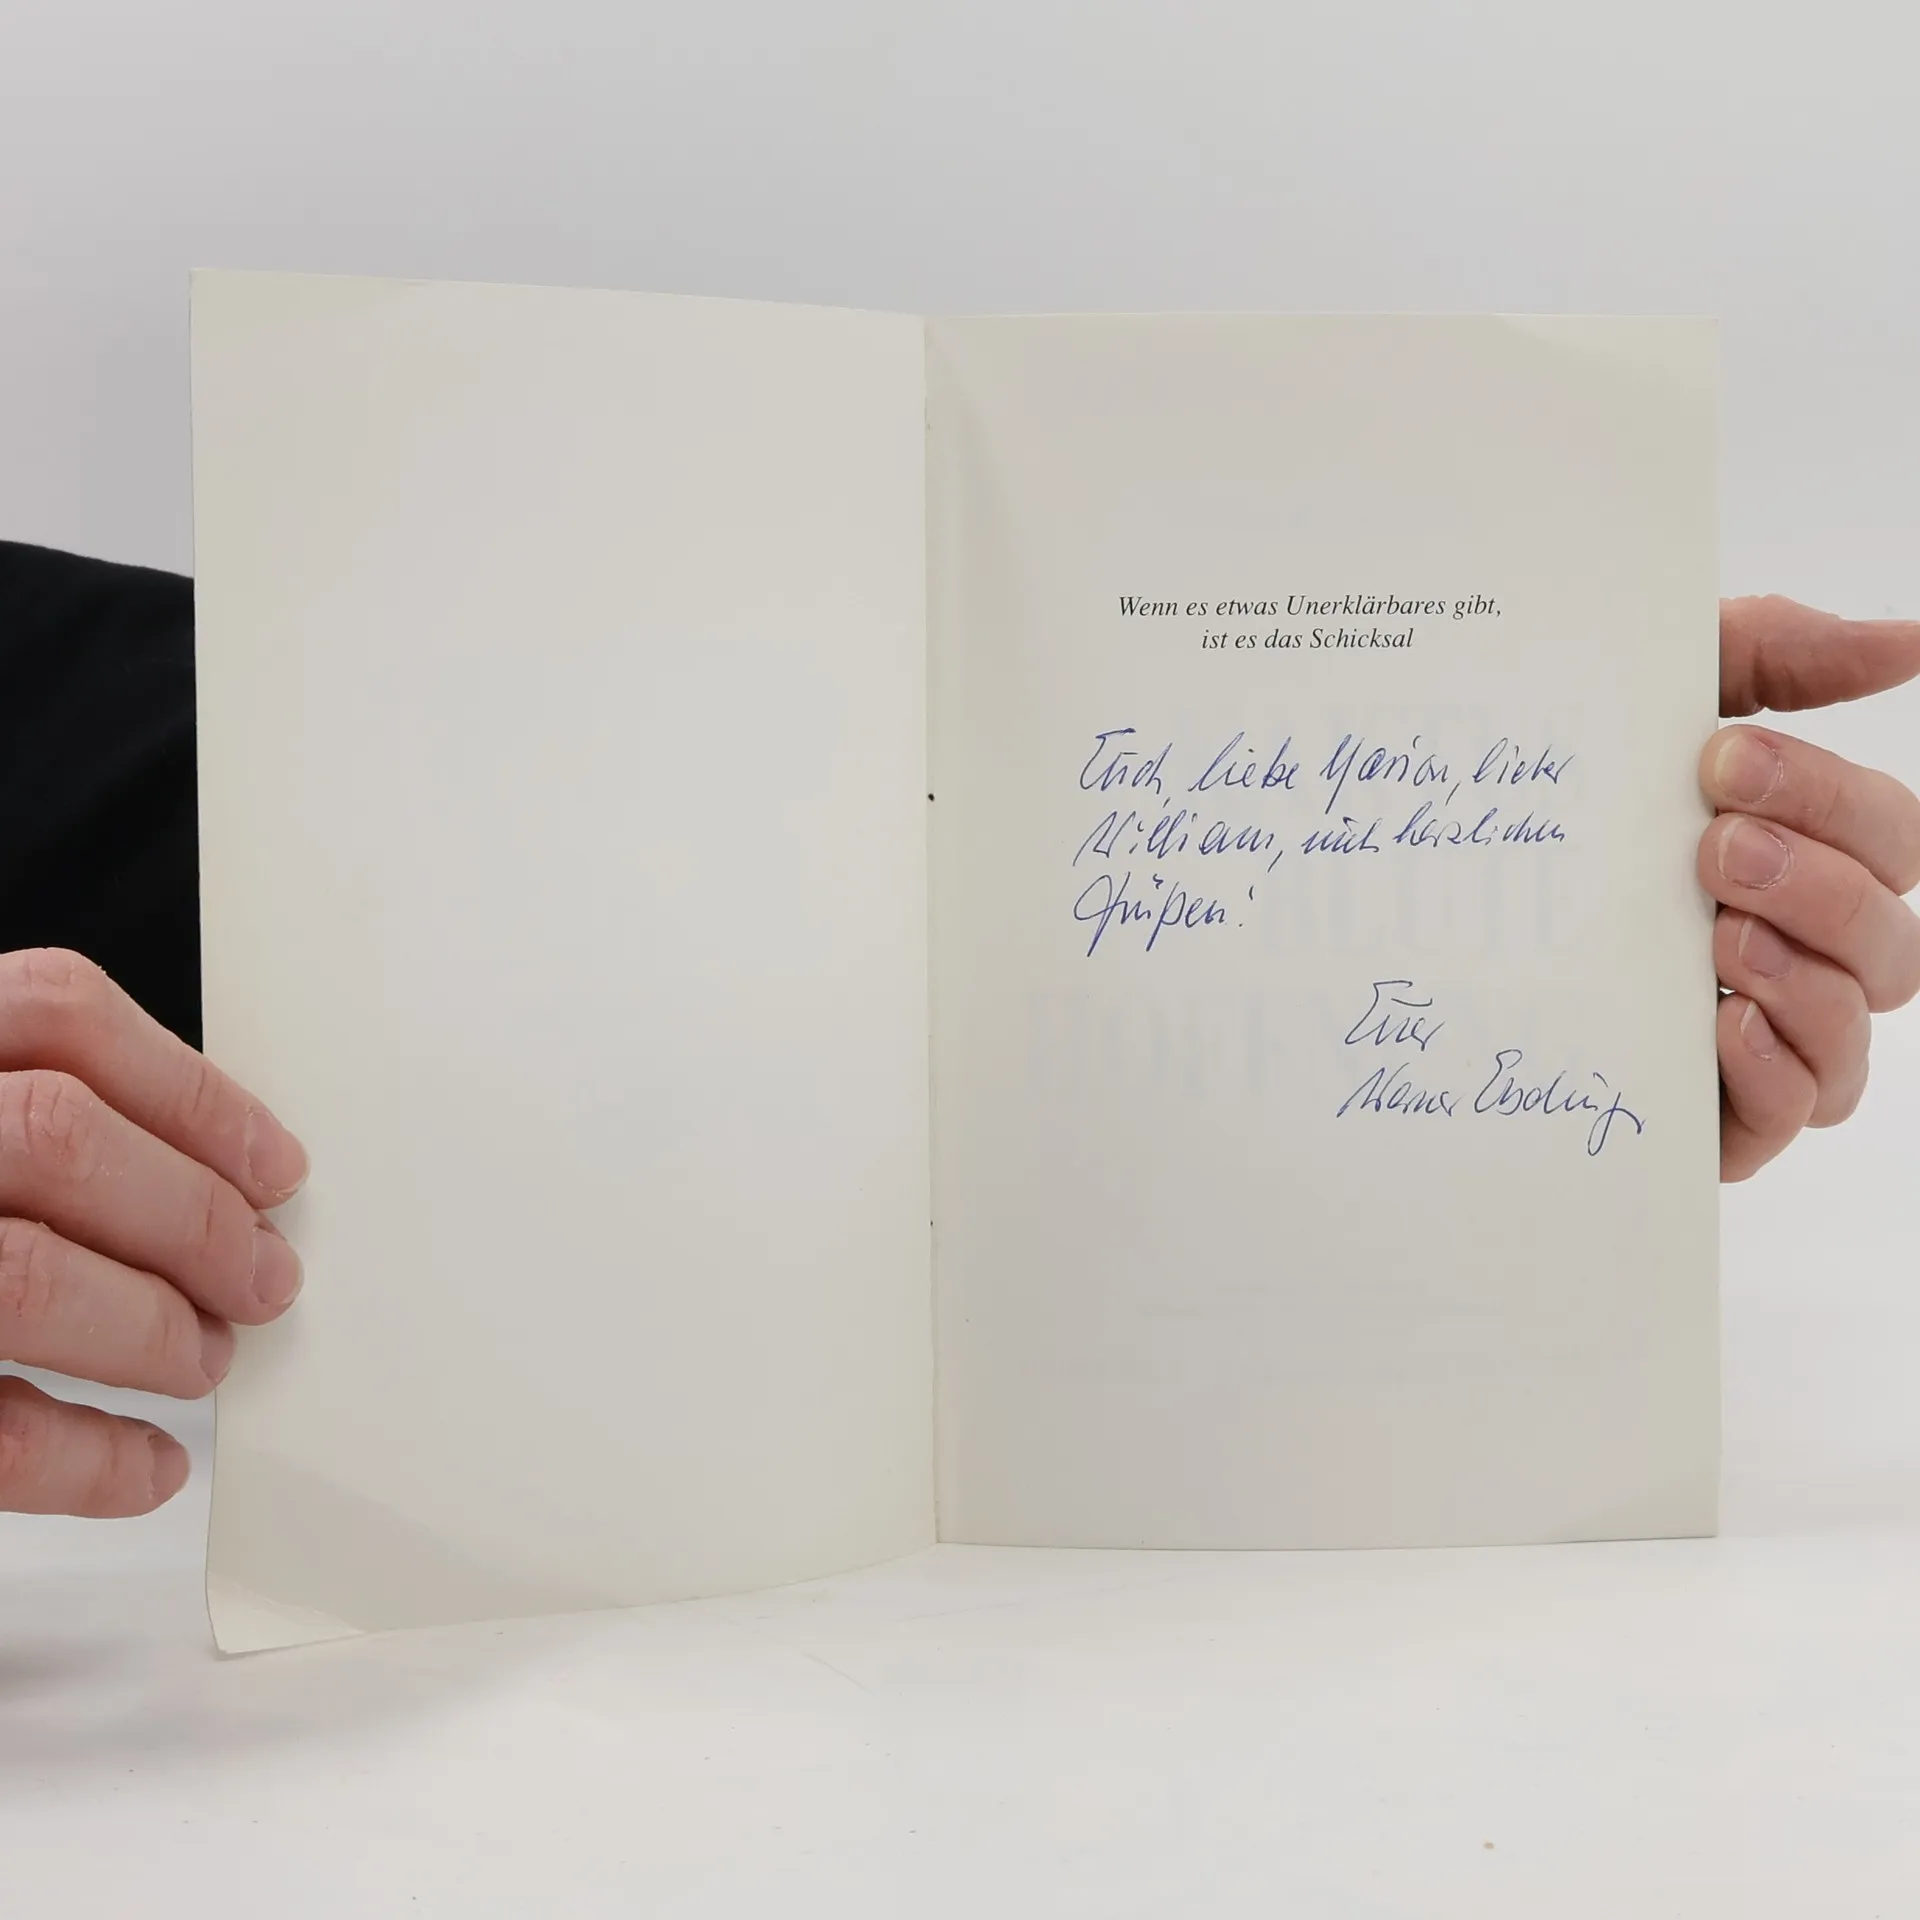 Wenn es etwas Unerklärbares gibt,
ist es das Schicksal
Euch, liebe Marion, lieber
William, mit herzlichen
Grüßen!
Euer
Werner